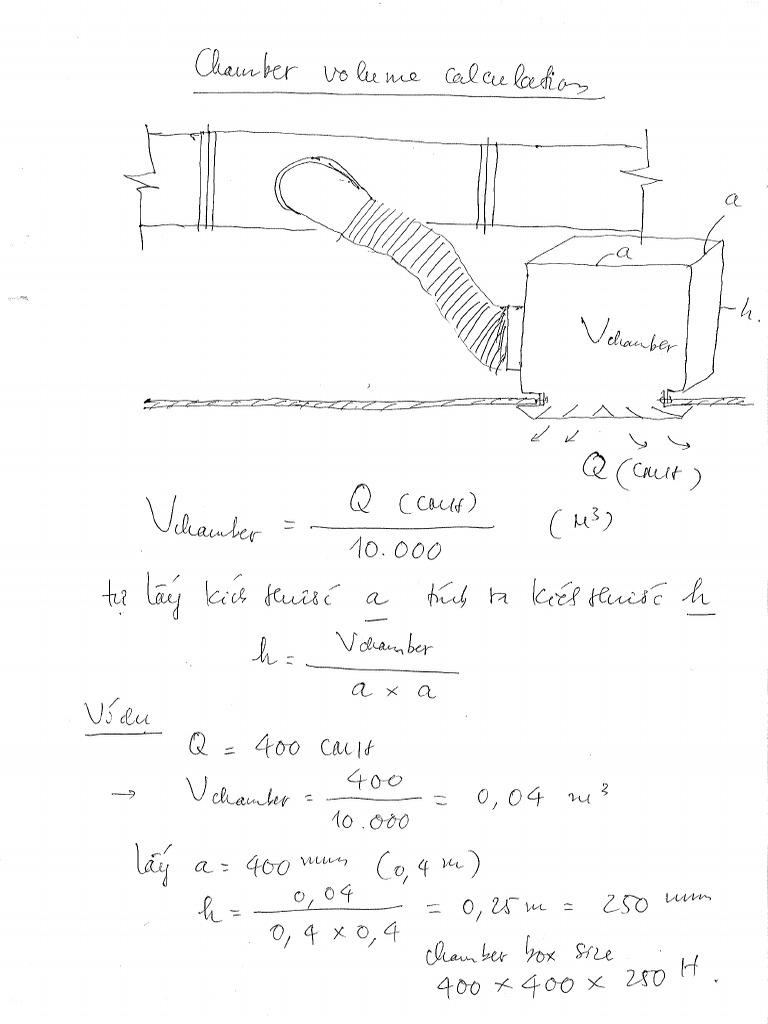 Chamber volume calculation
a
a
h.
Vchamber
Q (CMH)
Vchamber = Q (CMH) / 10.000 (M³)
tự lấy kích thước a tính ra kích thước h
h = Vchamber / a × a
Ví dụ
Q = 400 CMH
→ Vchamber = 400 / 10.000 = 0,04 m³
lấy a = 400 mm (0,4 m)
h = 0,04 / 0,4 × 0,4 = 0,25 m = 250 mm
chamber box size
400 × 400 × 250 H.